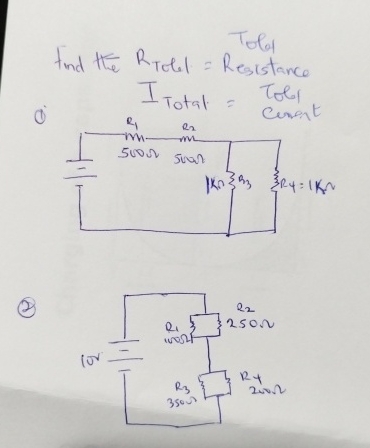 Total
Find the RTotal = Resistance
I Total = Total
Current
①
R1 R2
500Ω 500Ω
1KΩ R3 R4 = 1KΩ
②
R2
R1 250Ω
100Ω
10V
R3 R4
350Ω 200Ω